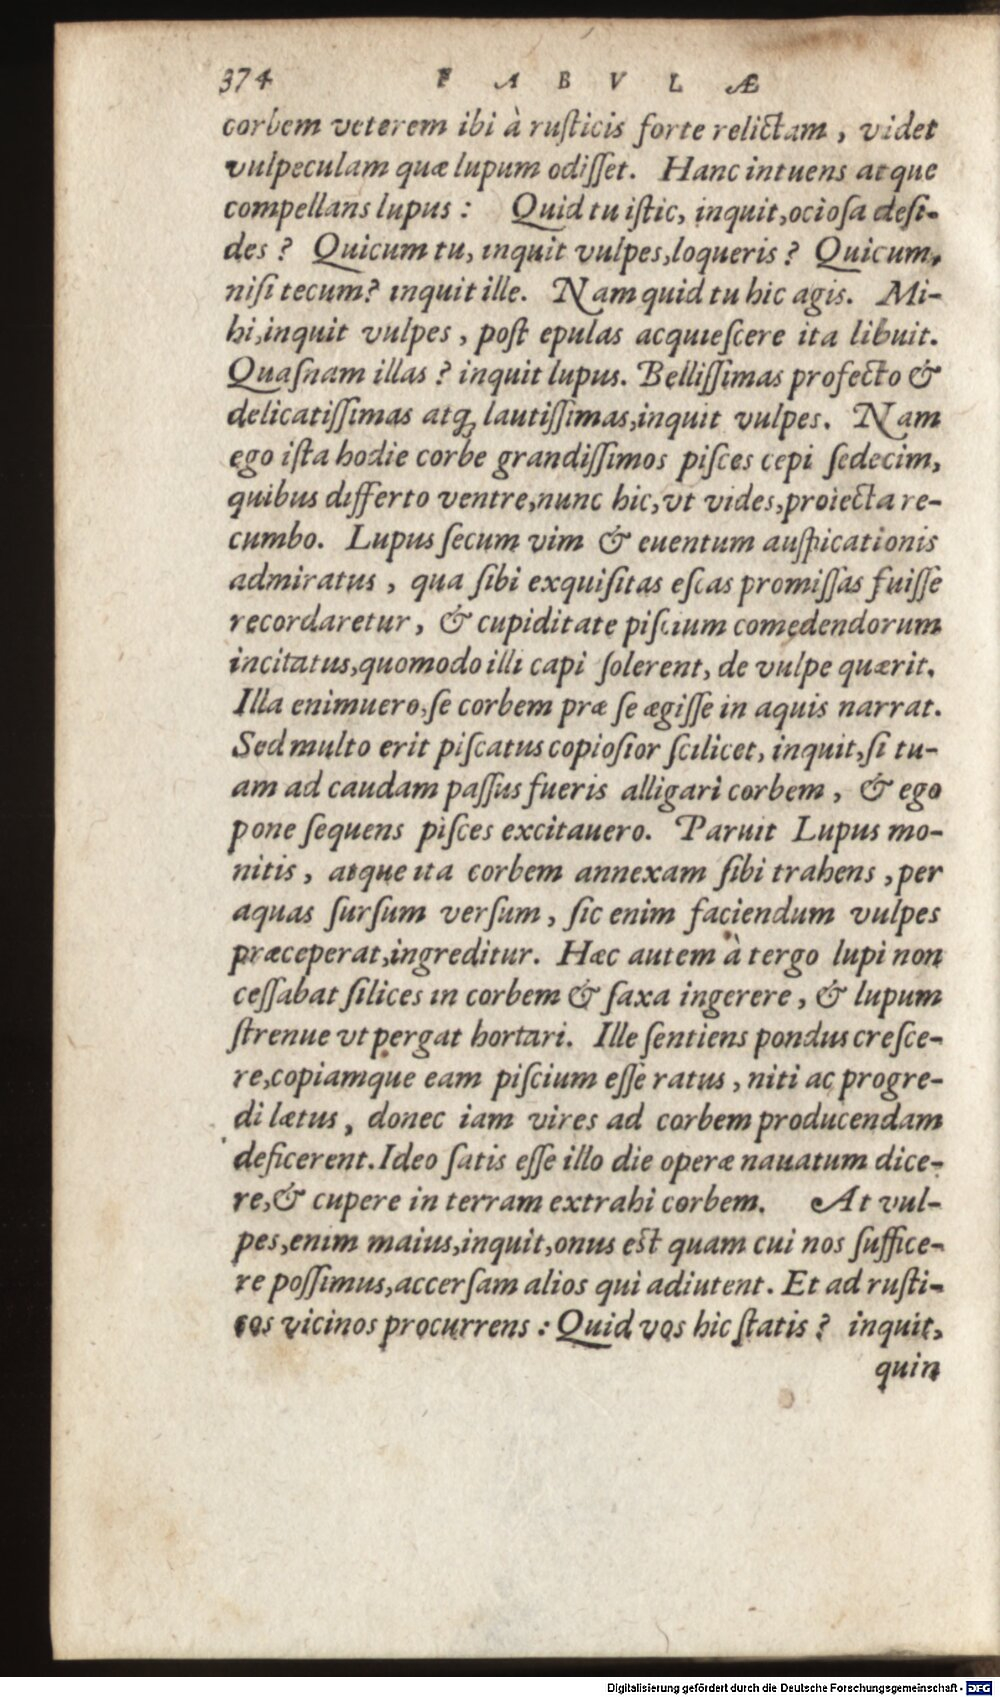 374 F A B V L Æ
corbem veterem ibi à ruſticis forte relictam, videt
vulpeculam quæ lupum odiſſet. Hanc intuens atque
compellans lupus: Quid tu iſtic, inquit, ocioſa deſi-
des? Quicum tu, inquit vulpes, loqueris? Quicum,
niſi tecum? inquit ille. Nam quid tu hic agis. Mi-
hi, inquit vulpes, poſt epulas acquieſcere ita libuit.
Quaſnam illas? inquit lupus. Belliſſimas profecto &
delicatiſſimas atq; lautiſſimas, inquit vulpes. Nam
ego iſta hodie corbe grandiſſimos piſces cepi ſedecim,
quibus differto ventre, nunc hic, vt vides, proiecta re-
cumbo. Lupus ſecum vim & euentum auſpicationis
admiratus, qua ſibi exquiſitas eſcas promiſſas fuiſſe
recordaretur, & cupiditate piſcium comedendorum
incitatus, quomodo illi capi ſolerent, de vulpe quærit.
Illa enimuero, ſe corbem præ ſe ægiſſe in aquis narrat.
Sed multo erit piſcatus copioſior ſcilicet, inquit, ſi tu-
am ad caudam paſſus fueris alligari corbem, & ego
pone ſequens piſces excitauero. Paruit Lupus mo-
nitis, atque ita corbem annexam ſibi trahens, per
aquas ſurſum verſum, ſic enim faciendum vulpes
præceperat, ingreditur. Hæc autem à tergo lupi non
ceſſabat ſilices in corbem & ſaxa ingerere, & lupum
ſtrenue vt pergat hortari. Ille ſentiens pondus creſce-
re, copiamque eam piſcium eſſe ratus, niti ac progre-
di lætus, donec iam vires ad corbem producendam
deficerent. Ideo ſatis eſſe illo die operæ nauatum dice-
re, & cupere in terram extrahi corbem. At vul-
pes, enim maius, inquit, onus eſt quam cui nos ſuffice-
re poſſimus, accerſam alios qui adiutent. Et ad ruſti-
cos vicinos procurrens: Quid vos hic ſtatis? inquit,
quin
Digitalisierung gefördert durch die Deutsche Forschungsgemeinschaft - DFG